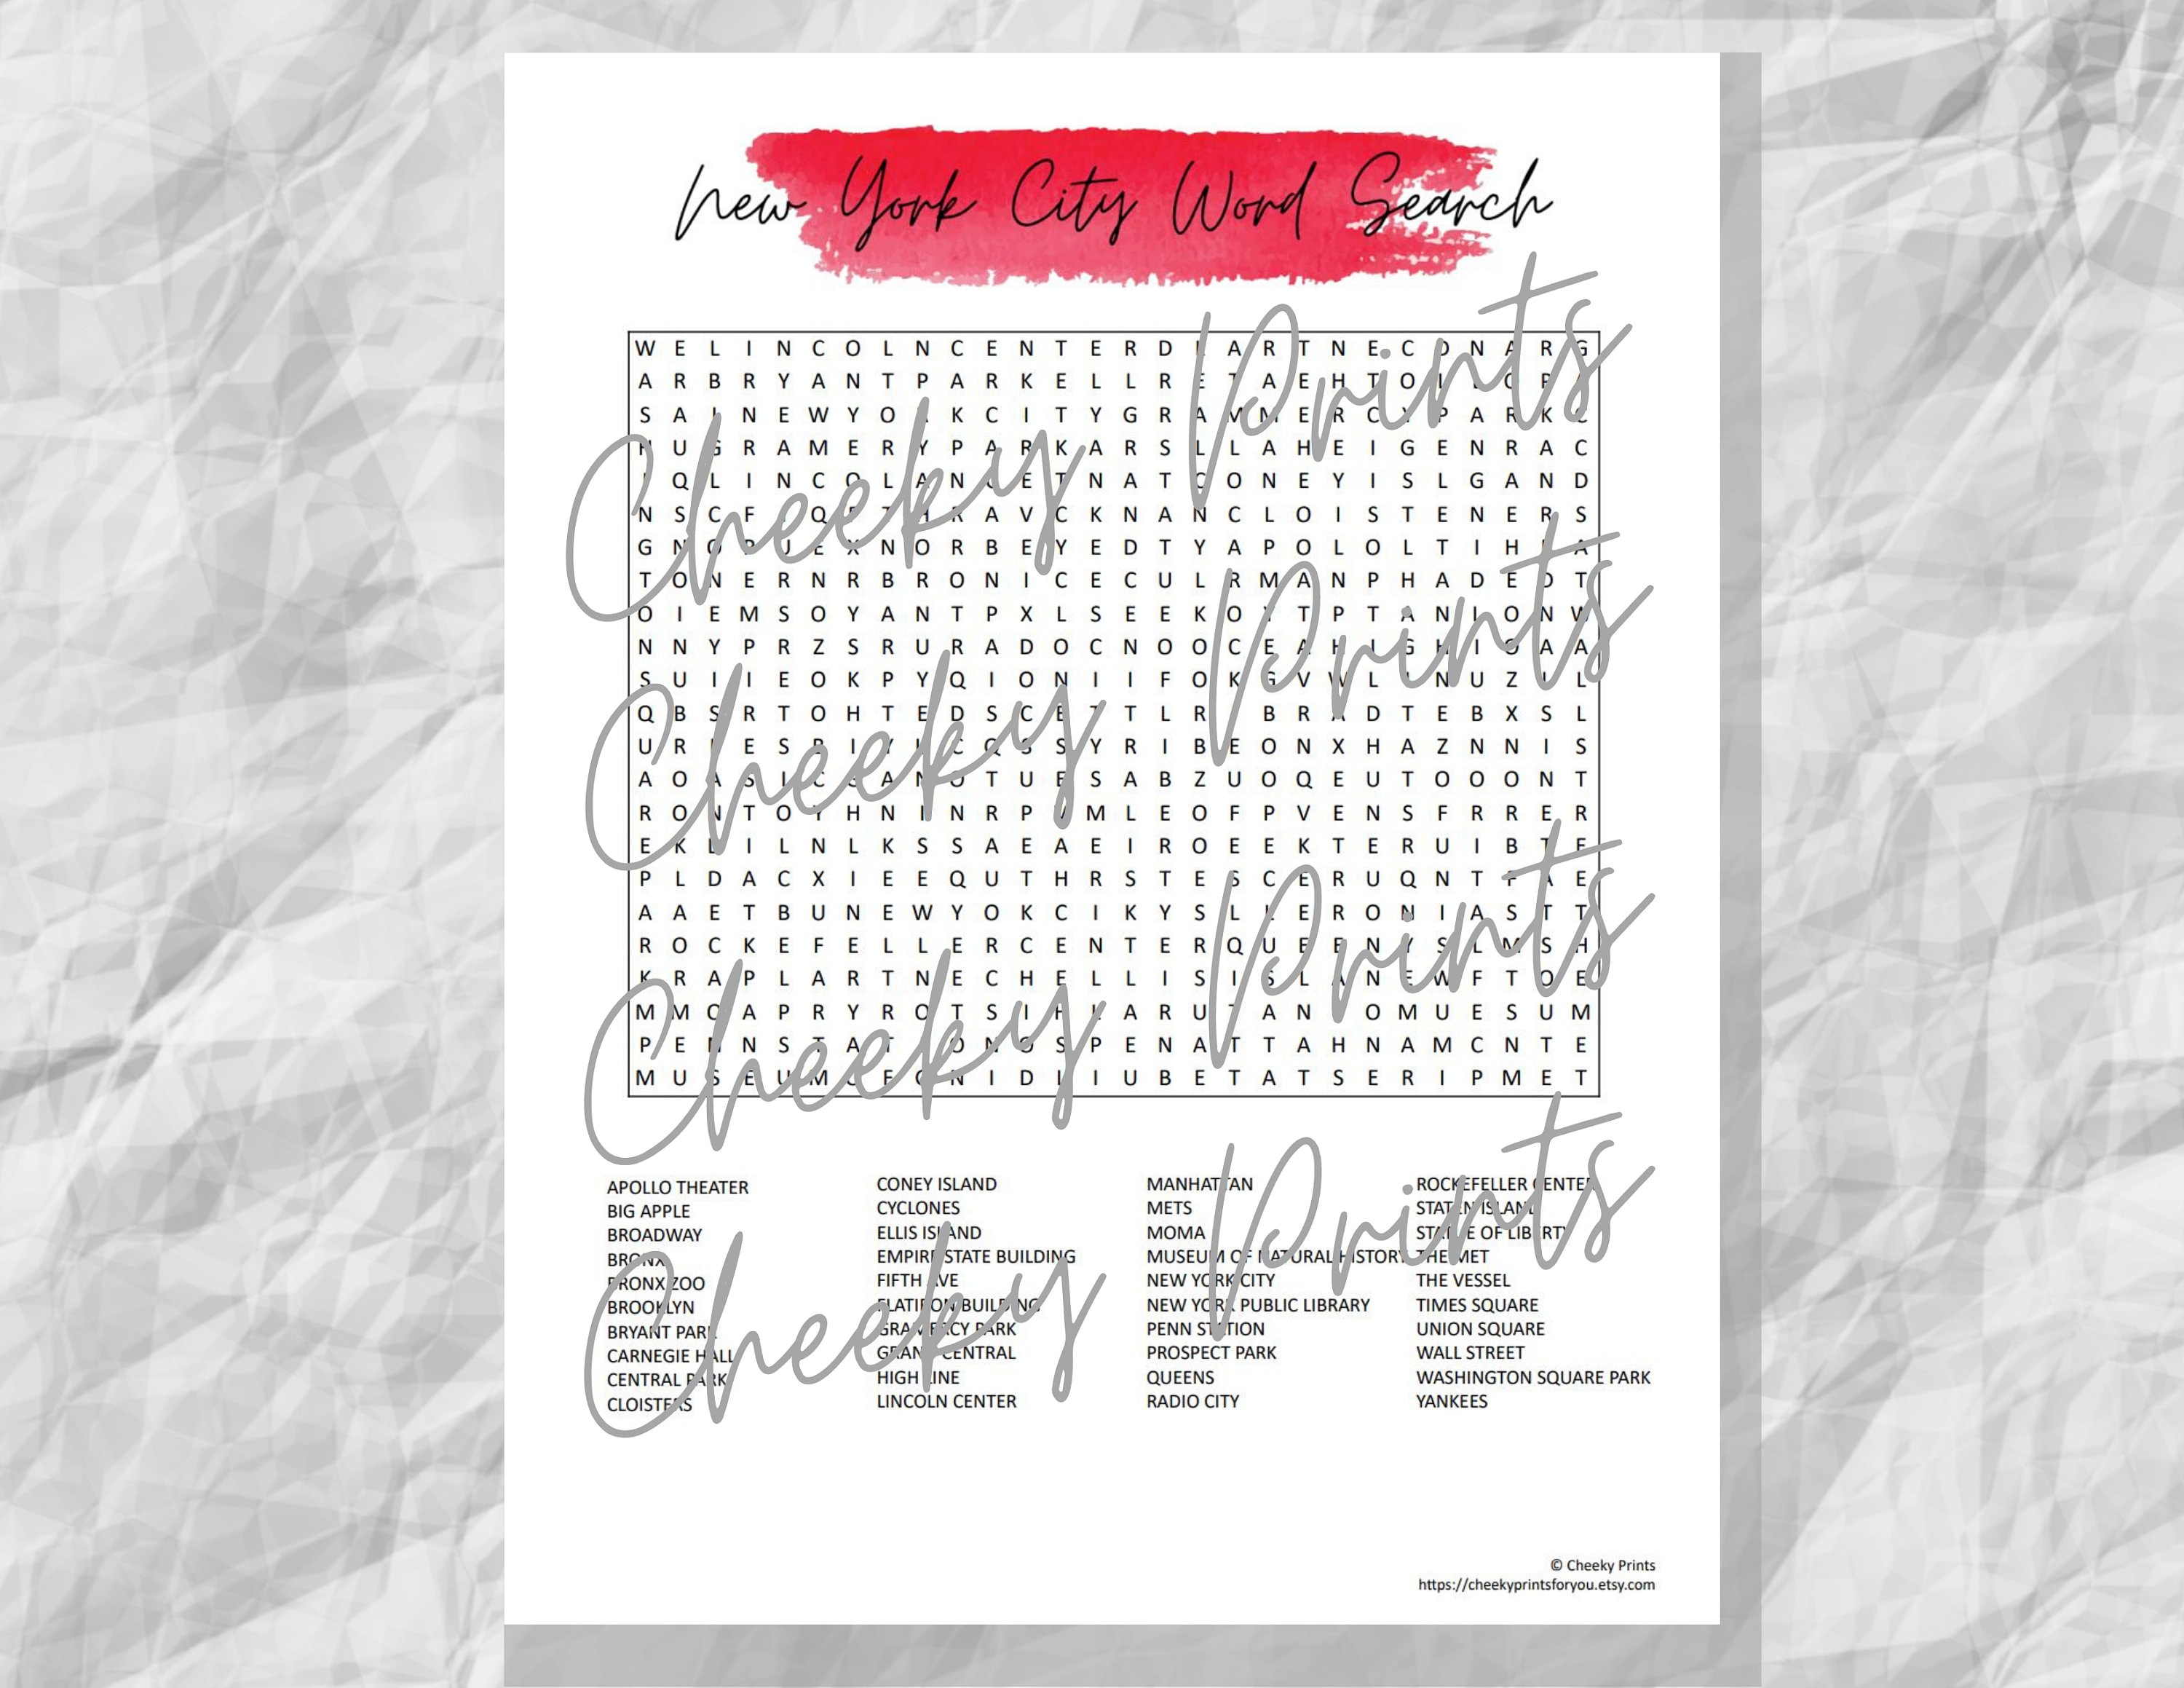 New York City Word Search
W E L I N C O L N C E N T E R D L A R T N E C D N A R G
A R B R Y A N T P A R K E L L R E T A E H T O L L O P A
S A I N E W Y O R K C I T Y G R A M M E R C Y P A R K C
H U G R A M E R Y P A R K A R S L L A H E I G E N R A C
Q L I N C O L A N C E T N A T C O N E Y I S L G A N D
N S C F Q T H R A V C K N A N C L O I S T E N E R S
G N O P U E X N O R B E Y E D T Y A P O L O L T I H A
T O N E R N R B R O N I C E C U L R M A N P H A D E D T
O I E M S O Y A N T P X L S E E K O Y T P T A N I O N W
N N Y P R Z S R U R A D O C N O O C E A H I G H I O A A
S U I I E O K P Y Q I O N I I F O K G V W L I N U Z L L
Q B S R T O H T E D S C E T T L R B R A D T E B X S L
U R L E S R I Y L C Q S S Y R I B E O N X H A Z N N I S
A O A S I C G A N O T U E S A B Z U O Q E U T O O O N T
R O N T O Y H N I N R P V M L E O F P V E N S F R R E R
E K D I L N L K S S A E A E I R O E E K T E R U I B T E
P L D A C X I E E Q U T H R S T E S C E R U Q N T F A E
A A E T B U N E W Y O K C I K Y S L L E R O N I A S T T
R O C K E F E L L E R C E N T E R Q U E E N Y S L M S H
K R A P L A R T N E C H E L L I S I S L A N E W F T O E
M M O A P R Y R O T S I H L A R U T A N F O M U E S U M
P E N N S T A T I O N O S P E N A T T A H N A M C N T E
M U S E U M O F O N I D L I U B E T A T S E R I P M E T
APOLLO THEATER
BIG APPLE
BROADWAY
BRONX
BRONX ZOO
BROOKLYN
BRYANT PARK
CARNEGIE HALL
CENTRAL PARK
CLOISTERS
CONEY ISLAND
CYCLONES
ELLIS ISLAND
EMPIRE STATE BUILDING
FIFTH AVE
FLATIRON BUILDING
GRAMERCY PARK
GRAND CENTRAL
HIGH LINE
LINCOLN CENTER
MANHATTAN
METS
MOMA
MUSEUM OF NATURAL HISTORY
NEW YORK CITY
NEW YORK PUBLIC LIBRARY
PENN STATION
PROSPECT PARK
QUEENS
RADIO CITY
ROCKEFELLER CENTER
STATEN ISLAND
STATUE OF LIBERTY
THE MET
THE VESSEL
TIMES SQUARE
UNION SQUARE
WALL STREET
WASHINGTON SQUARE PARK
YANKEES
Cheeky Prints
Cheeky Prints
Cheeky Prints
Cheeky Prints
© Cheeky Prints
https://cheekyprintsforyou.etsy.com